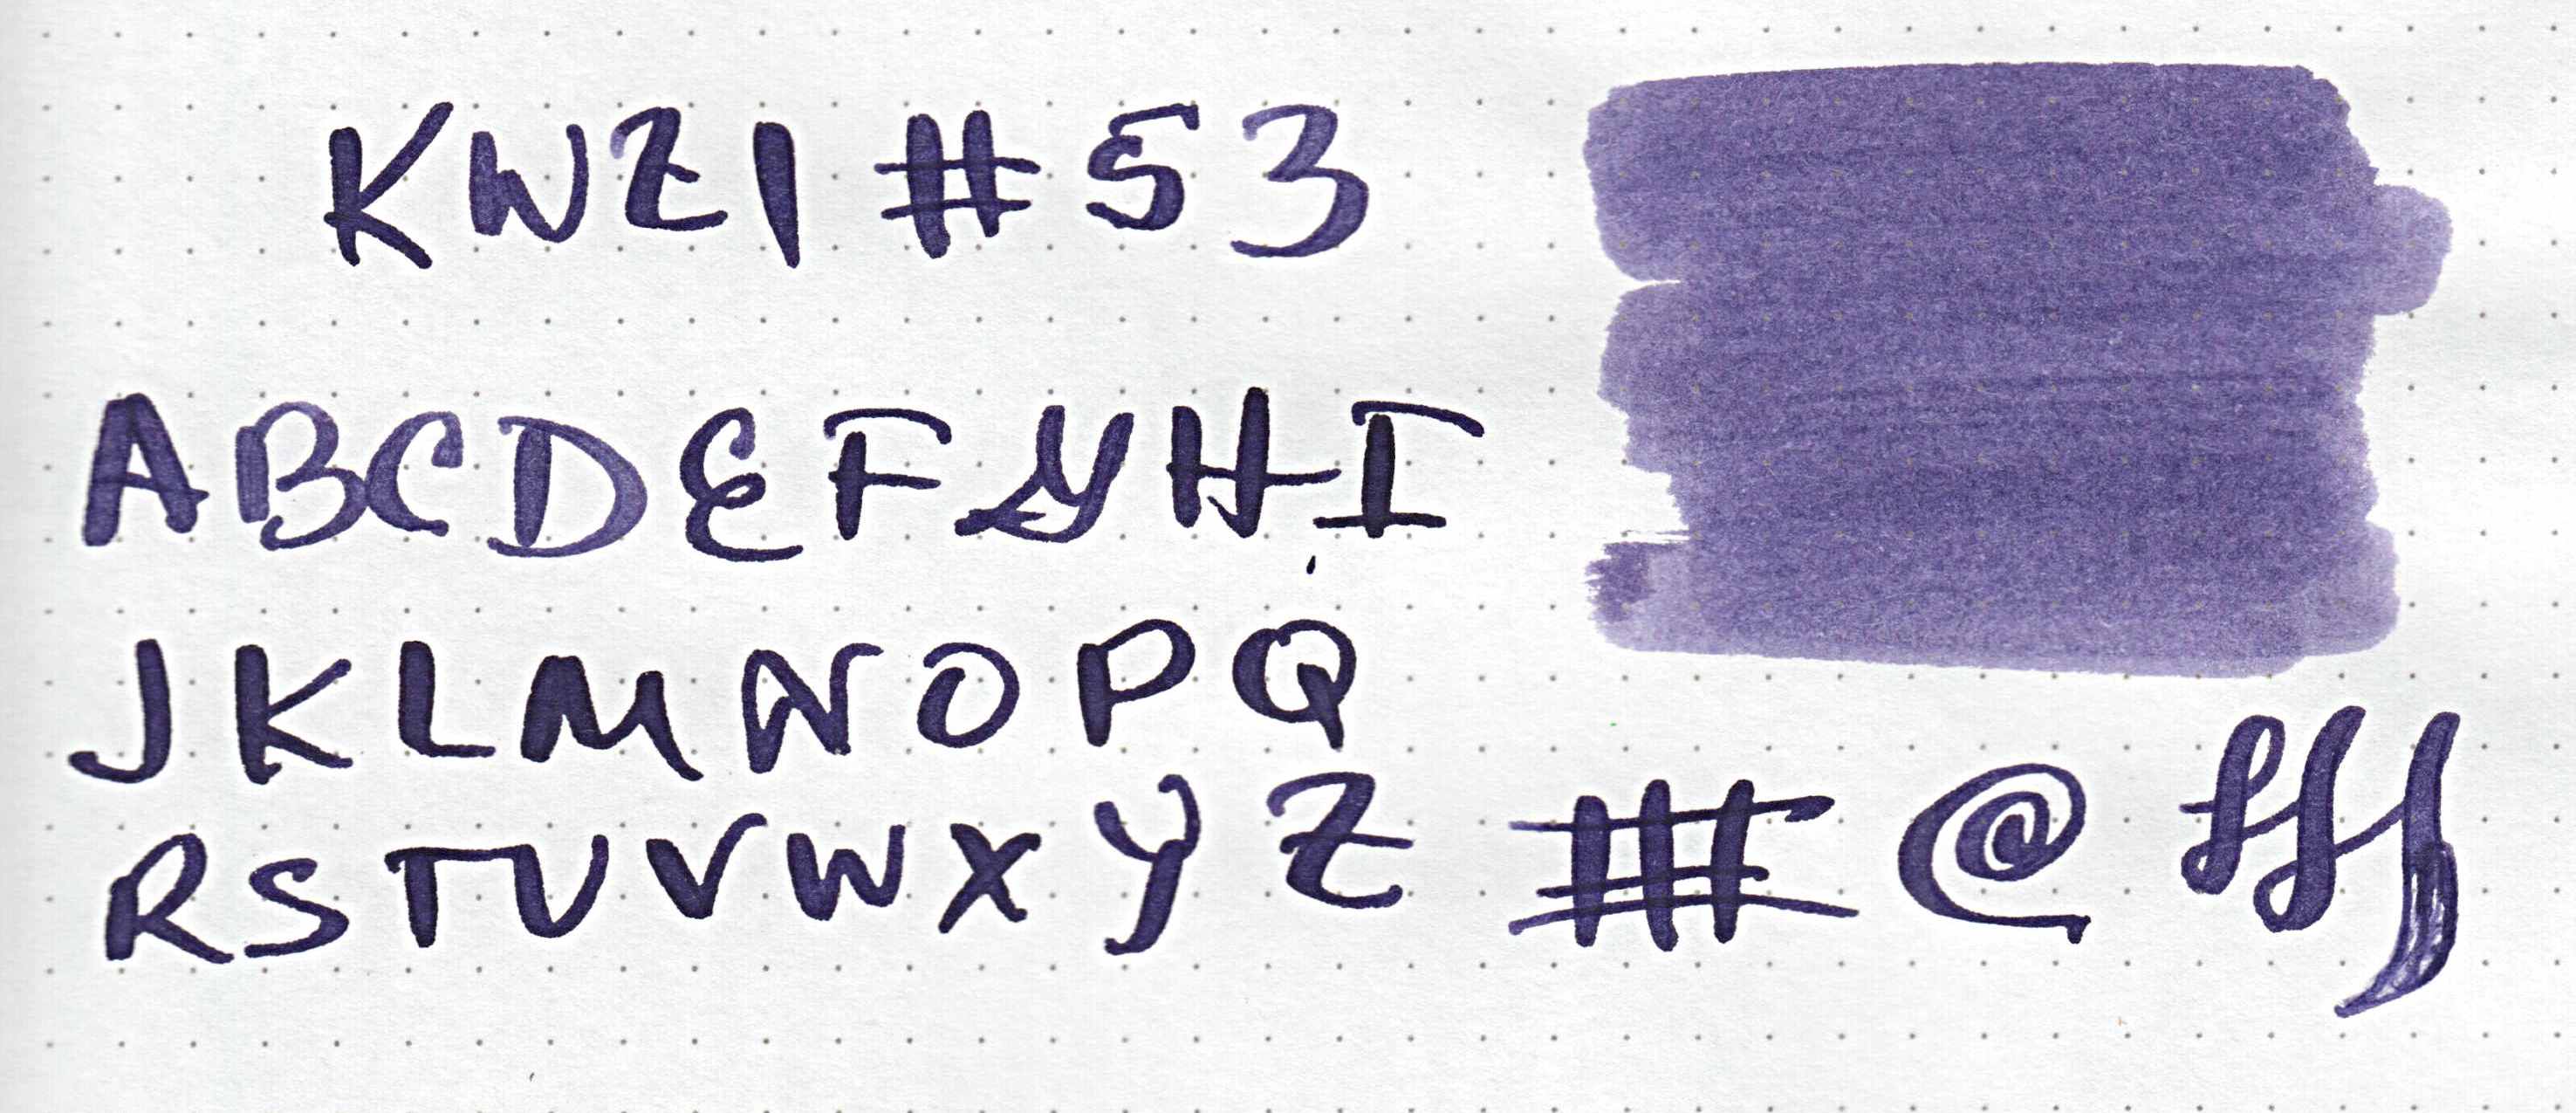 KWZI #53
ABCDEFGHI
JKLMNOPQ
RSTUVWXYZ
# @